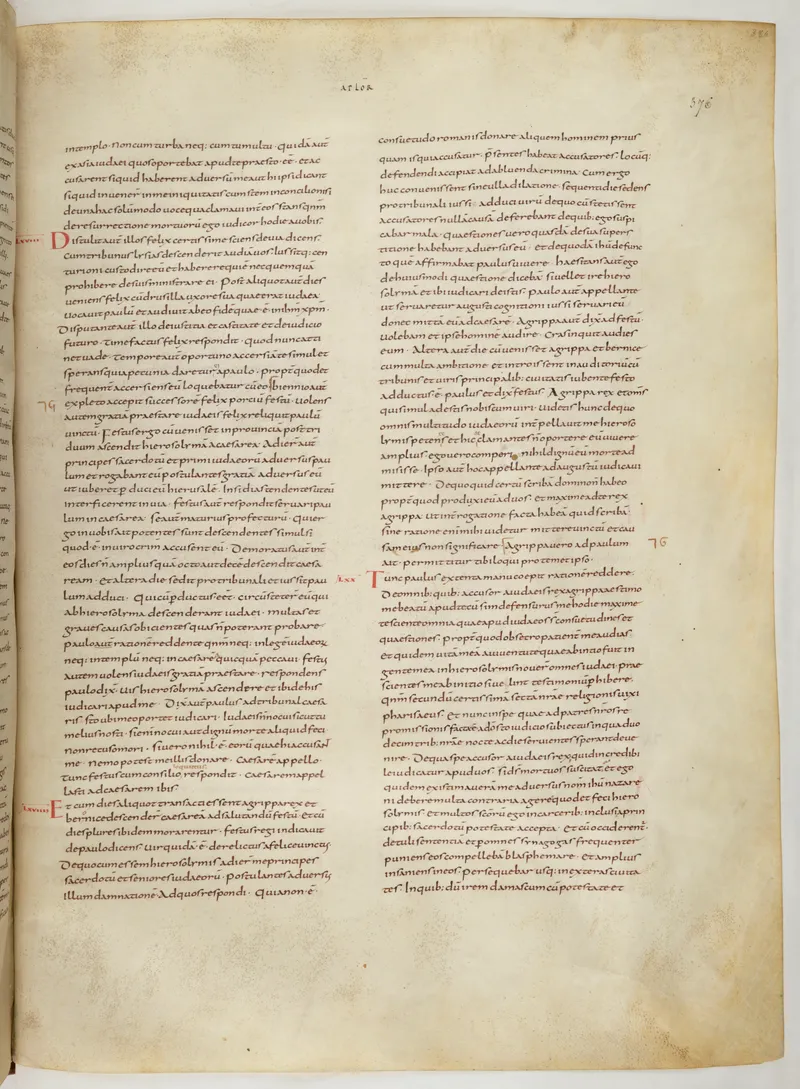 ACTƆR
376
intemplo · Non cum turba neq; cum tumultu · quidā aut̄
exasia iudaei quos oportebat apud te praesto · eē · et ac
cusare siquid haberent aduersū me aut hi ipsi dicant
siquid inuenerint in me iniquitatis cum stem in concilio nisi
de una hac solūmodo uoce qua clamaui int̄ eos stans qm̄
de resurrectione mortuorū ego iudicor hodie a uobis ·
Distulit aut̄ illos felix certissime sciens de uia dicens ·
Cum tribunus lysias descenderit audia uos · Iussitq: cen
turioni custodire eū et habere requiē nec quemquā
prohibere de suis ministrare ei · Post aliquot aut̄ dies
ueniens felix cū drusilla uxore sua quae erat iudaea
uocauit paulū et audiuit ab eo fidē quae · ē · in ihm̄ xpm̄ ·
Disputante aut̄ illo de iustitia et castitate et de iudicio
futuro · timefactus felix respondit · quod nunc atti
net uade · tempore aut̄ oportuno accersiā te simul et
sperans quia pecunia daretur a paulo · propt̄ quod et
frequent̄ accersiens eū loquebatur cū eo · biennio aut̄
expleto accepit successorē felix porciū festū · Uolens
aut̄ gratiā praestare iudaeis felix reliquit paulū
uinctū · Festus ergo cū uenisset in prouinciā post tri
duum ascendit hierosolymā a caesarea · Adier̄ aut̄
principes sacerdotū et primi iudaeorū aduersus pau
lum et rogabant eū postulantes gratiā aduersus eū
ut iuberet pduci eū hierusalē · Insidias tendentes ut eū
interficerent in uia · festus aut̄ respondit seruari pau
lum in caesarea · se aut̄ maturius profecturū · Qui er
go in uobis ait potentes sunt descendentes simul si
quod · ē · in uiro crimen accusent eū · Demoratus aut̄ int̄
eos dies n̄ amplius quā octo aut decē descendit caesa
ream · et altera die sedit pro tribunali et iussit pau
lum adduci · Qui cū pductus eēt · circūstetēr eū qui
ab hierosolyma descenderant iudaei · multas et
graues causas obicientes quas n̄ poterant probare ·
paulo aut̄ rationē reddente qm̄ neq: in legē iudaeoȝ
neq: in templū neq: in caesarē quicquā peccaui · festus
autem uolens iudaeis gratiā praestare · respondens
paulo dix̄ · Uis hierosolymā ascendere et ibi de his
iudicari apud me · Dix̄ aut̄ paulus ad tribunal caesa
ris sto ubi me oportet iudicari · Iudaeis n̄ nocui sicut tu
melius nosti · si eni nocui aut dignū morte aliquid feci
non recuso mori · si uero nihil · ē · eorū quae hi accusant
me · nemo potest me illis donare · Caesarē appello ·
tunc festus cum consilio respondit · caesarem appel
lasti ad caesarem ibis ·
Et cum dies aliquot transacti essent agrippa rex et
bernice descender̄ caesarea ad salutandū festū · Et cū
dies plures ibidem morarentur · festus regi indicauit
de paulo dicens · Uir quidā · ē · derelictus a felice uinctus
De quo cum essem hierosolymis adier̄ me principes
sacerdotū et seniores iudaeorū · postulantes aduersus
illum damnationē · Ad quos respondi · Quia non · ē ·
consuetudo romanis donare aliquem hominem prius
quam is qui accusatur · p̄sentes habeat accusatores · locūq:
defendendi accipiat ad abluenda crimina · Cum ergo
huc conuenissent sine ulla dilatione · sequenti die sedens
pro tribunali iussi · adduci uirū de quo cū stetissent
accusatores nullā causā deferebant de quib: ego suspi
cabar mala · quaestiones uero quasdā de sua supers
titione habebant aduersus eū · et de quodā ihū defunc
to quē affirmabat paulus uiuere · haesitans aut̄ ego
de huiusmodi quaestione dicebā si uellet ire hiero
solymā et ibi iudicari de istis · paulo aut̄ appellante
ut seruaretur ad augusti cognitionē iussi seruari eū
donec mittā eū ad caesarē · Agrippa aut̄ dix̄ ad festū ·
Uolebam et ipse hominē audire · Cras inquit audies
eum · Altera aut̄ die cū uenisset agrippa et bernice
cum multa ambitione · et introissent in auditoriū cū
tribunis et uiris principalib: ciuitatis iubente festo
adductus · ē · paulus et dix̄ festus · Agrippa rex et om̄s
qui simul adestis nobiscum uiri · Uidetis hunc de quo
omnis multitudo iudaeorū int̄pellauit me hieroso
lymis petens et hic clamantes n̄ oportere eū uiuere
amplius · ego uero comperi nihil dignū eū morte ad
misisse · Ipso aut̄ hoc appellante ad augustū iudicaui
mittere · De quo quid certū scribā domino n̄ habeo
propt̄ quod produxi eū ad uos · et maxime ad te rex
agrippa · ut int̄rogatione facta habeā quid scribā ·
sine ratione enī mihi uidetur mittere uinctū et cau
sam eius non significare · Agrippa uero ad paulum
ait · permittitur tibi loqui pro temet ipso ·
Tunc paulus extenta manu coepit rationē reddere ·
De omnib: quib: accusor a iudaeis rex agrippa aestimo
me beatū apud te cū sim defensurus me hodie maxime
te sciente omnia quae apud iudaeos s̄ consuetudines et
quaestiones · propt̄ quod obsecro patient̄ me audias
et quidem uitā meā a iuuentute quae ab initio fuit in
gente mea in hierosolymis nouer̄ omnes iudaei · prae
scientes me ab initio si uelint testimoniū phibere ·
qm̄ secundū certissimā sectā nrae religionis uixi
pharisaeus · Et nunc in spe quae ad patres nros re
promissionis facta ē a dō sto iudicio subiectus in qua duo
decim trib: nrae nocte ac die seruientes sperant deue
nire · De qua spe accusor a iudaeis rex · quid incredibi
le iudicatur apud uos · si ds̄ mortuos suscitat · et ego
quidem existimaueram me aduersus nom̄ ihū nazare
ni debere multa contraria agere quod et feci hiero
solymis · et multos scōrū ego in carcerib: inclusi a prin
cipib: sacerdotū potestate accepta · Et cū occiderent̄ ·
detuli sententiā et p omnes synagogas frequenter
puniens eos compellebā blasphemare · et amplius
insaniens in eos · persequebar usq: in exteras ciuita
tes · In quib: dū irem damascum cū potestate et